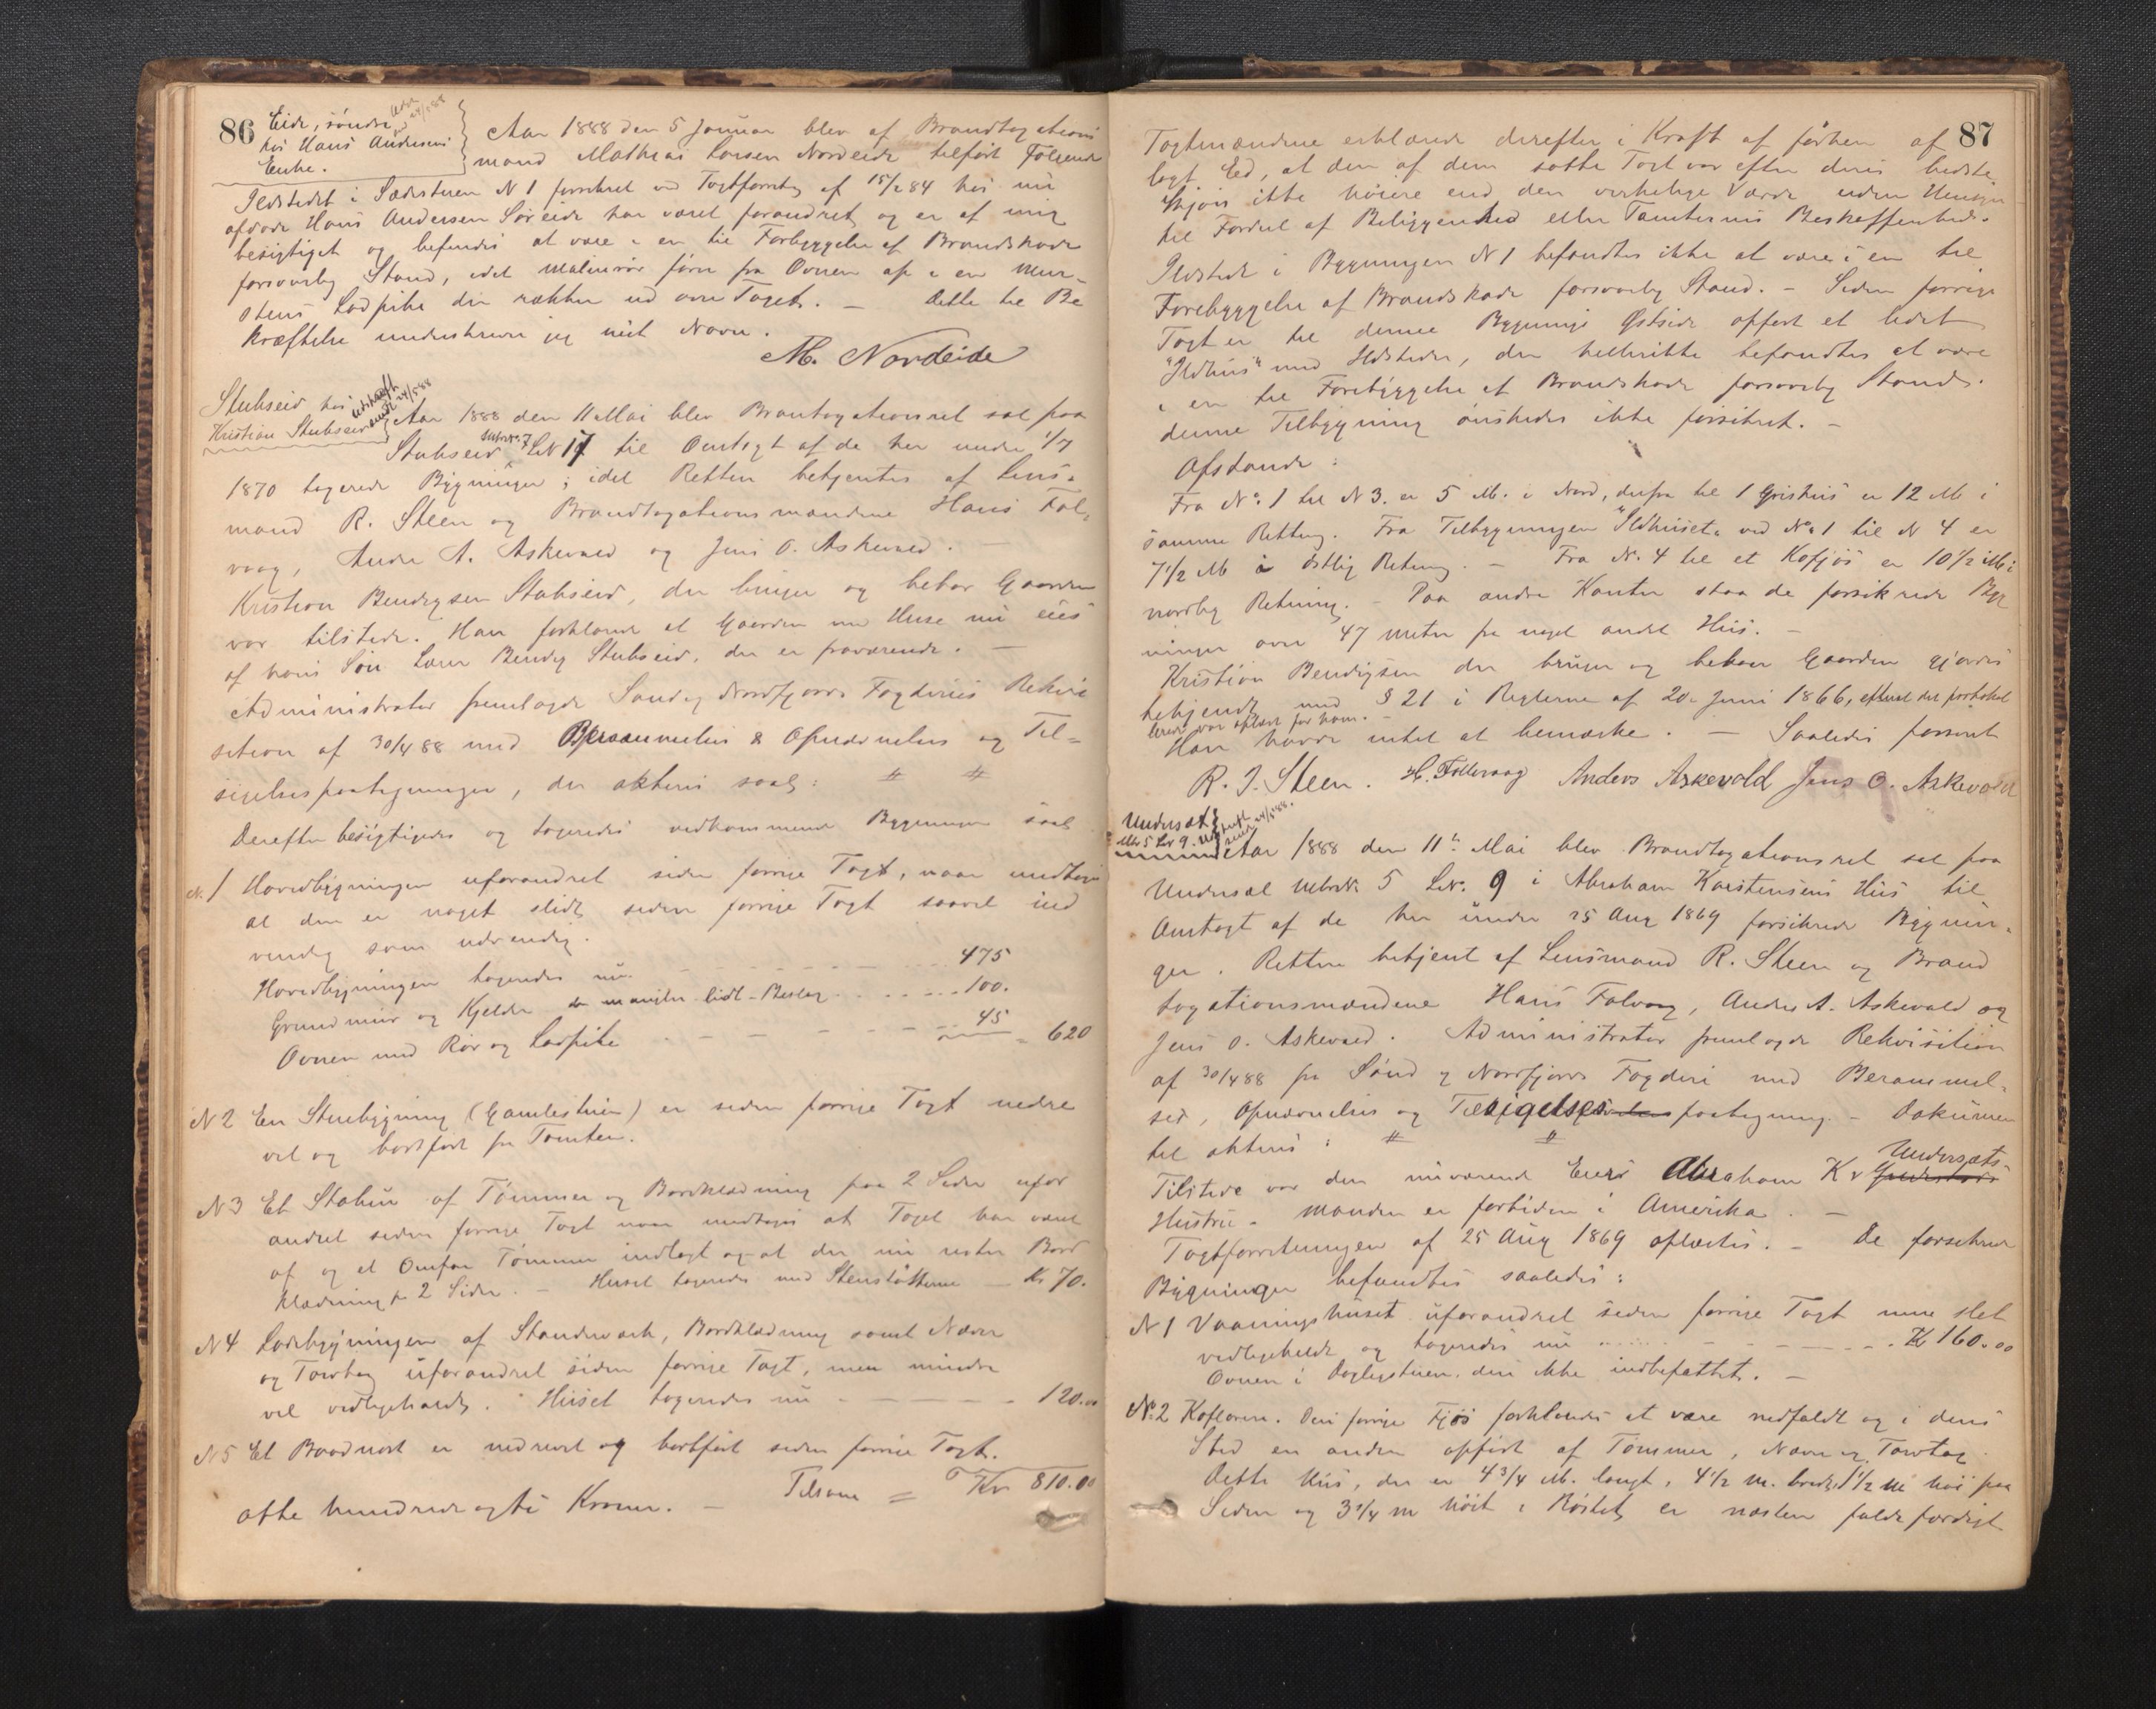 86
Eide, søndre
hos Hans Andersens
Enke.
Aar 1888 den 5 Januar blev af Brandtaxations
mand Mathias Larsen Nordeide tilført Følgende
Ildstedet i Sædestuen N 1 forsikret ved Taxtforretng af 15/2 84 hos nu
afdøde Hans Andersen Søreide har været forandret og er af mig
besigtiget og befundes at være i en til Forbyggelse af Brandskade
forsvarlig Stand, idet Malmrør fører fra Ovnen op i en Mur-
stens Ladpibe der rækker ud over Taget. – Dette til Be
kræftelse underskriver jeg mit Navn.
M. Nordeide
Stubseid hos
Kristian Stubseid
Udskrift
sendt 24/5 88
Aar 1888 den 11 Mai blev Brantaxationsret sat paa
Stubseid Matr. 7 LN 17 til Omtaxt af de her under 1/7
1870 taxerede Bygninger; idet Retten betjentes af Lens-
mand R. Steen og Brandtaxationsmændene Hans Fol-
vaag, Andr A. Askevold og Jens O. Askevold. –
Kristian Bendixsen Stubseid, der bruger og bebor Gaarden
var tilstede. Han forklarede at Gaarden med Huse nu eies
af hans Søn Lærer Bendix Stubseid, der er fraværende. –
Administrator fremlagde Sønd og Nordfjords Fogderies Rekvi
sition af 30/4 88 med Berammelses & Opnævnelses og Til-
sigelsespaategninger, der akteres saal: # #
Derefter besigtigedes og taxeredes vedkommende Bygninger saal
N. 1 Hovedbygningen uforandret siden forrige Taxt, naar undtages
at den er noget slidt siden forrige Taxt saavel ind
vendig som udvendig.
Hovedbygningen taxeredes nu 475
Grundmur og Kjelder der mangler lidt Beslag 100.
Ovnen med Rør og Ladpibe 45 = 620
N 2 En Stuebygning (Gamlestuen) er siden forrige Taxt nedre
vet og bortført fra Tomten.
N 3 Et Stabur af Tømmer og Bordklædning paa 2 Sider ufor
andret siden forrige Taxt naar undtages at Taget har været
af og et Omfar Tømmer indlagt og at der nu Bord
klædning p 2 Sider. – Huset taxeredes med Stenstøtterne – Kr 70.
N 4 Ladebygningen af Standværk, Bordklædning samt Næver
og Torvtag uforandret siden forrige Taxt, men mindre
vel vedligeholdt. Huset taxeredes nu 120.00
N 5 Et Baadnøst er nedrevet og bortført siden forrige Taxt.
Tilsame = Kr 810.00
otte hundrede og ti Kroner. –
87
Taxtmændene erklærede derefter i Kraft af forhen af
lagt Ed, at den af dem satte Taxt var efter deres bedste
Skjøn ikke høiere end den virkelige Værdi uden Hensyn
til Fordel af Beliggenhed eller Tomternes Beskaffenhed.
Ildstedet i Bygningen N 1 befandtes ikke at være i en til
Forebyggelse af Brandskade forsvarlig Stand. – Siden forrige
Taxt er til denne Bygnings Østside opført et lidet
"Ildhus" med Ildsteder, der hellerikke befandtes at være
i en til Forebyggelse af Brandskade forsvarlig Stand.
denne Tilbygning ønskedes ikke forsikret. –
Afstande:
Fra No. 1 til N 3. er 5 M. i Nord, derfra til 1 Grishus er 12 M i
samme Retning. Fra Tilbygningen "Ildhuset" ved No 1 til N 4 er
7 1/2 M i østlig Retning. – Fra N. 4 til et Kofjøs er 10 1/2 M i
nordlig Retning. – Paa andre Kanter staa de forsikrede Byg
ninger over 47 Meter fra noget andet Hus. –
Kristian Bendixsen der bruger og bebor Gaarden gjordes
bekjendt med § 21 i Reglerne af 20. Juni 1866, efterat det protokol
lerede var oplæst for ham. –
Han havde intet at bemærke. – Saaledes passeret
R. J. Steen. H. Follevaag Anders Askevold Jens O. Askevold
Undersæt
Mtr 5 Lr 9. Udskrift
sendt 24/5 88.
Aar 1888 den 11te Mai blev Brandtaxationsret sat paa
Undersæt Matr. 5 Lr. 9 i Abraham Karstensens Hus til
Omtaxt af de her under 25 Aug 1869 forsikrede Bygnin-
ger. Retten betjent af Lensmand R. Steen og Brand
taxationsmændene Hans Folvaag, Anders A. Askevold og
Jens O. Askevold. Administrator fremlagde Rekvisition
af 30/4 88 fra Sønd og Nordfjords Fogderi med Berammel-
ses, Opnævnelses og Tilsigelsespaategning. – Dokumen
tet akteres: # #
Tilstede var den nuværende Eiers Abraham K Undersæts
Hustru. Manden er fortiden i Amerika. –
Taxtforretningen af 25 Aug 1869 oplæstes. – De forsikrede
Bygninger befandtes saaledes:
N 1 Vaaningshuset uforandret siden forrige Taxt men slet
vedligeholdt og taxeredes nu Kr 160.00
Ovnen i Dagligstuen deri ikke indbefattet. –
No. 2 Kofloren. Den forrige Fjøs forklaredes at være nedfaldt og i dens
Sted en anden opført af Tømmer, Næver og Torvtag
Dette Hus, der er 4 3/4 M. langt, 4 1/2 M. bredt, 1 1/2 M høi paa
Siden og 3 1/4 m høit i Røstet, er næsten faldefærdigt